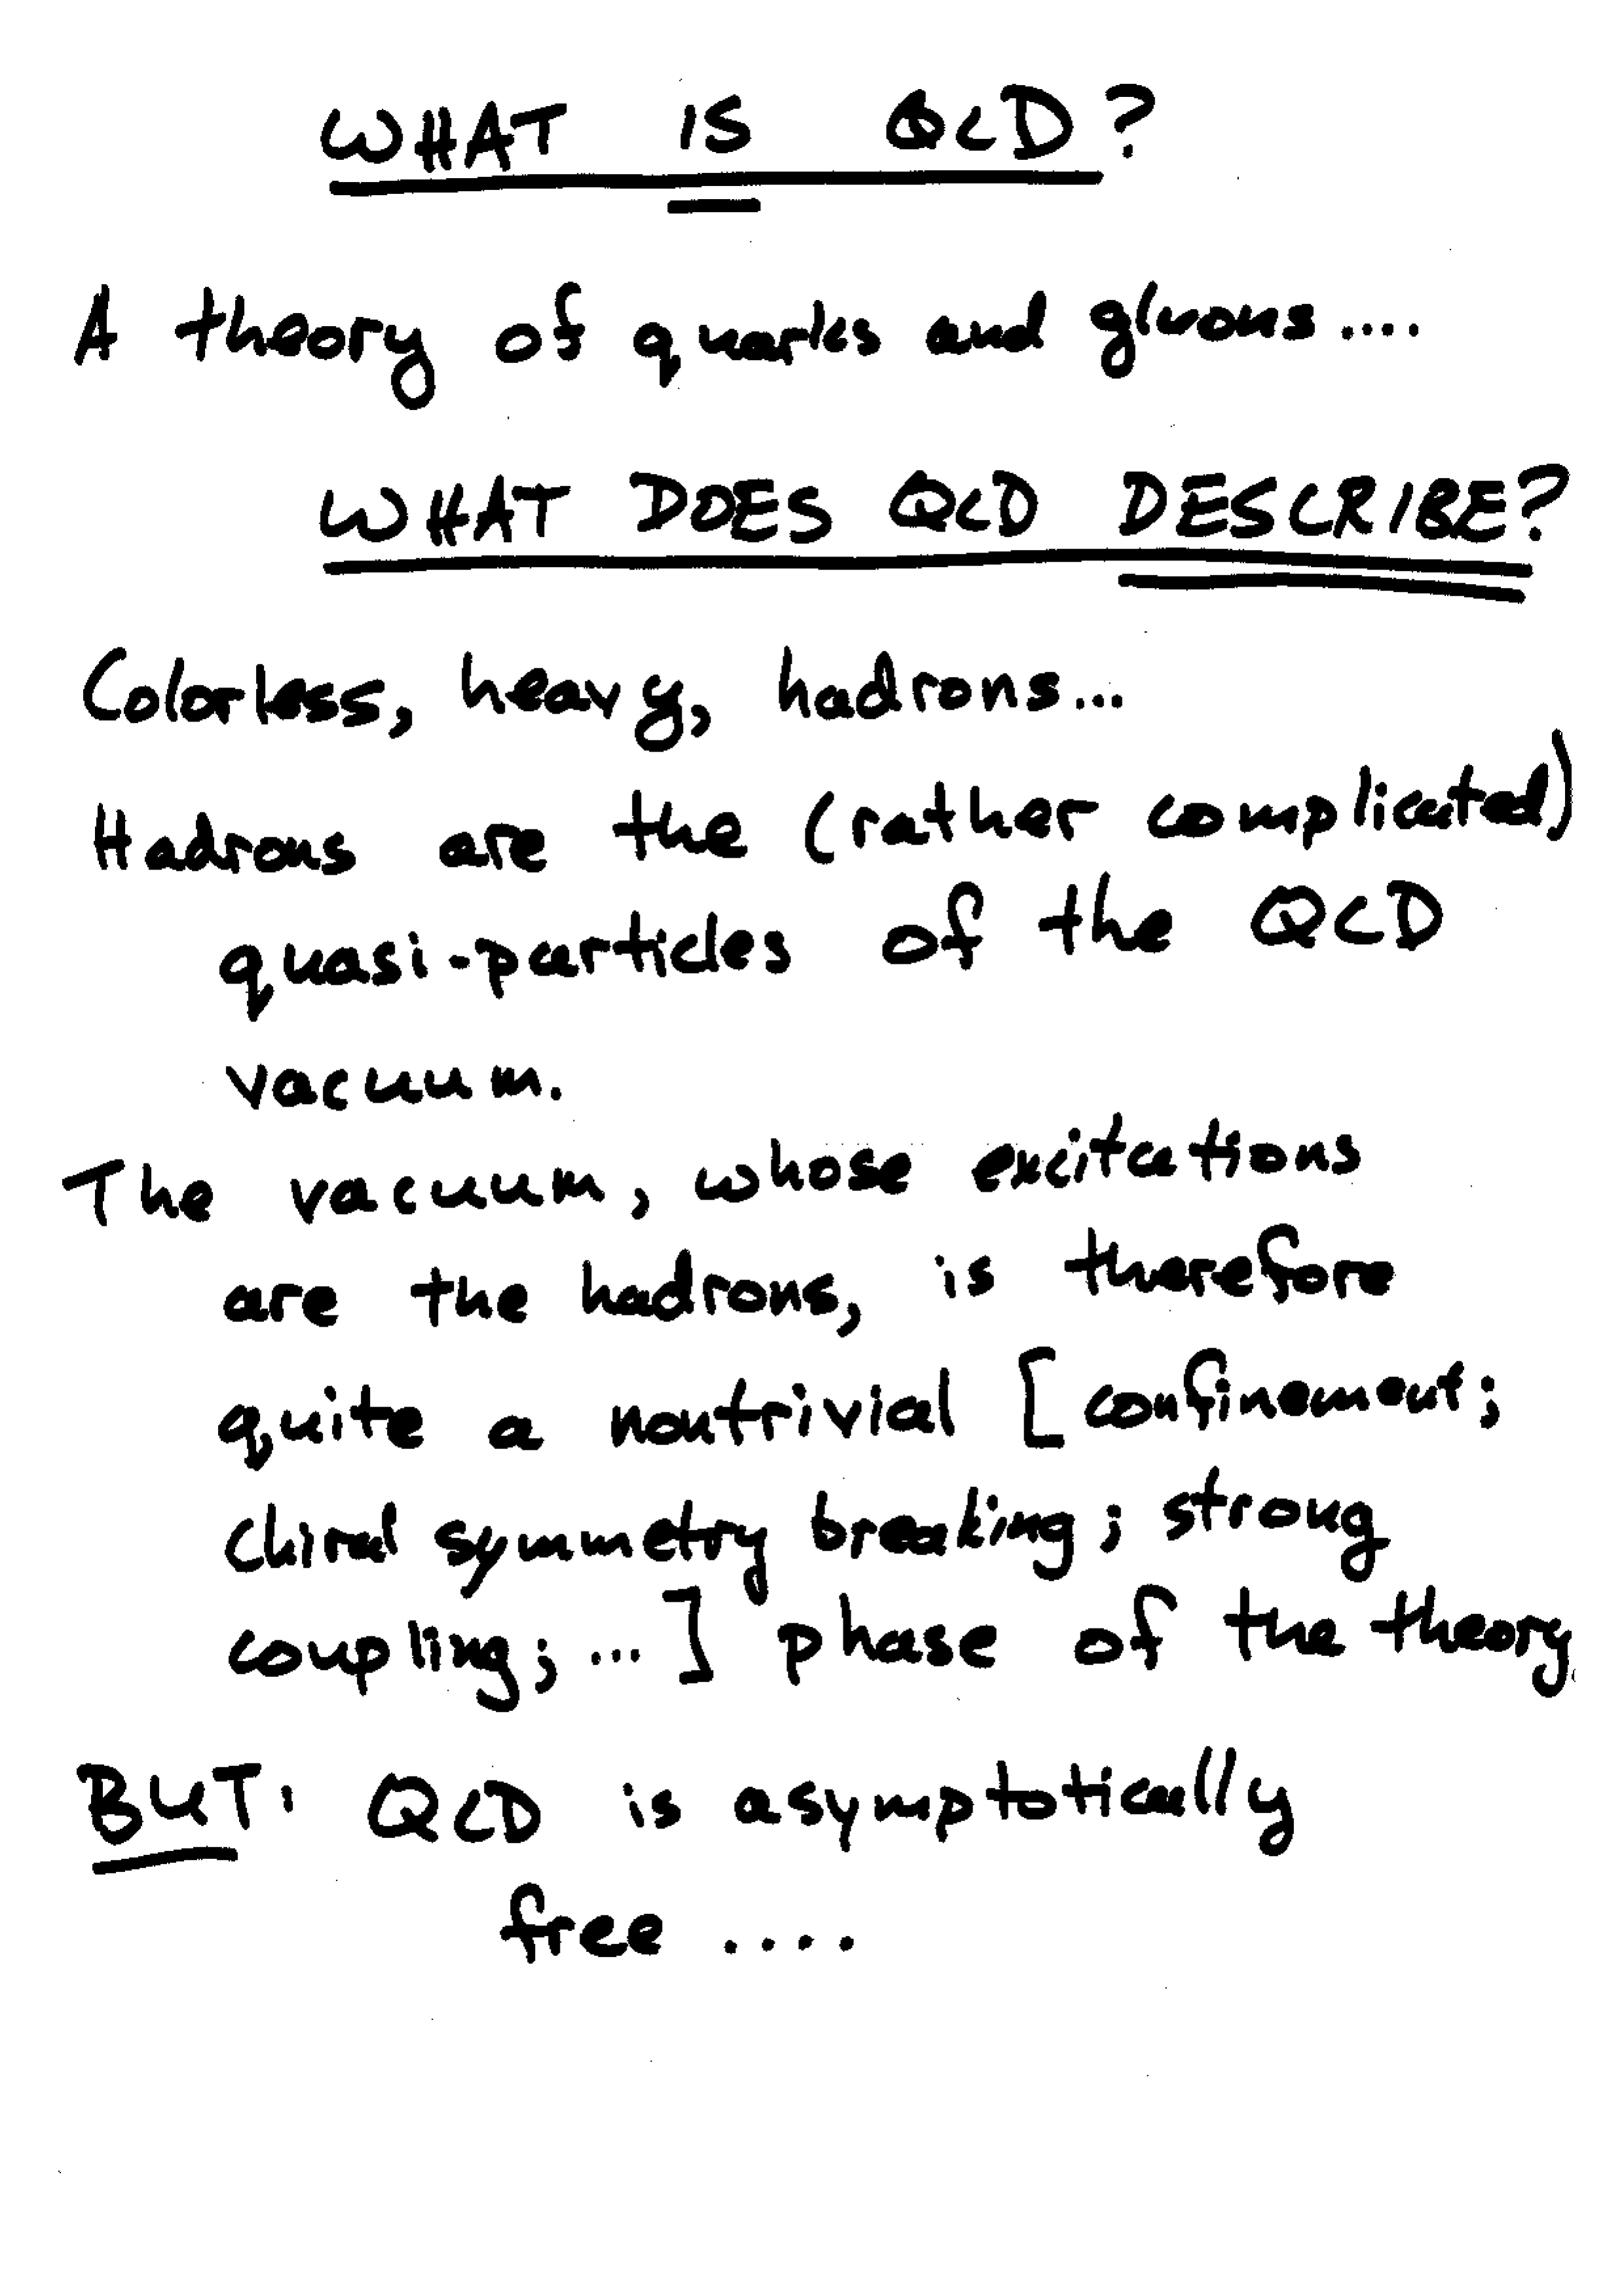 WHAT IS QCD?
A theory of quarks and gluons....
WHAT DOES QCD DESCRIBE?
Colorless, heavy, hadrons...
Hadrons are the (rather complicated)
quasi-particles of the QCD
vacuum.
The vacuum, whose excitations
are the hadrons, is therefore
quite a nontrivial [confinement;
chiral symmetry breaking; strong
coupling; ...] phase of the theory.
BUT: QCD is asymptotically
free ....